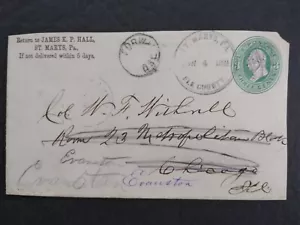 Return to JAMES K. P. HALL,
ST. MARYS, PA.,
If not delivered within 5 days.
ST. MARYS, PA
ELK COUNTY
Col W. T.
Room 23 Metropolitan Block
Evanston Chicago
Evanston Ill